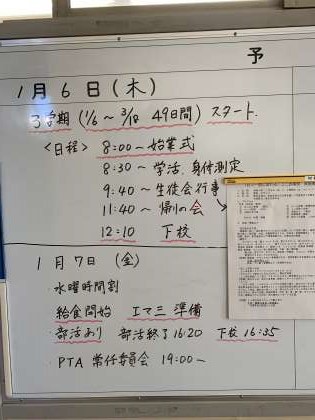 予
1月6日(木)
3学期(1/6～3/18 49日間)スタート.
<日程> 8:00～始業式
8:30～学活、身体測定
9:40～生徒会行事
11:40～帰りの会
12:10 下校
1月7日(金)
・水曜時間割
・給食開始 エマ三 準備
・部活あり 部活終了16:20 下校16:35
・PTA 常任委員会 19:00～